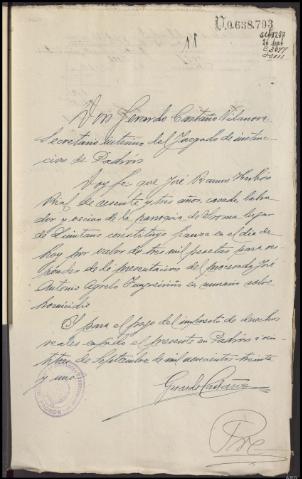 V.0.638.793
11
Don Gerardo Castaño Vilanova
Secretario interino del Juzgado de instruc-
cion de Padrón
Doy fe que José Ramos
Rial, de sesenta y tres años, casado, labra-
dor y vecino de la parroquia de lugar
de constituyó fianza en el dia de
hoy por valor de tres mil pesetas para res-
ponder de la presentacion del procesado José
Antonio Agrelo en sumario sobre
homicidio
Y para el pago del impuesto de derechos
reales expido el presente en Padrón a veinti-
siete de Septiembre de mil novecientos treinta
y uno
Gerardo Castaño